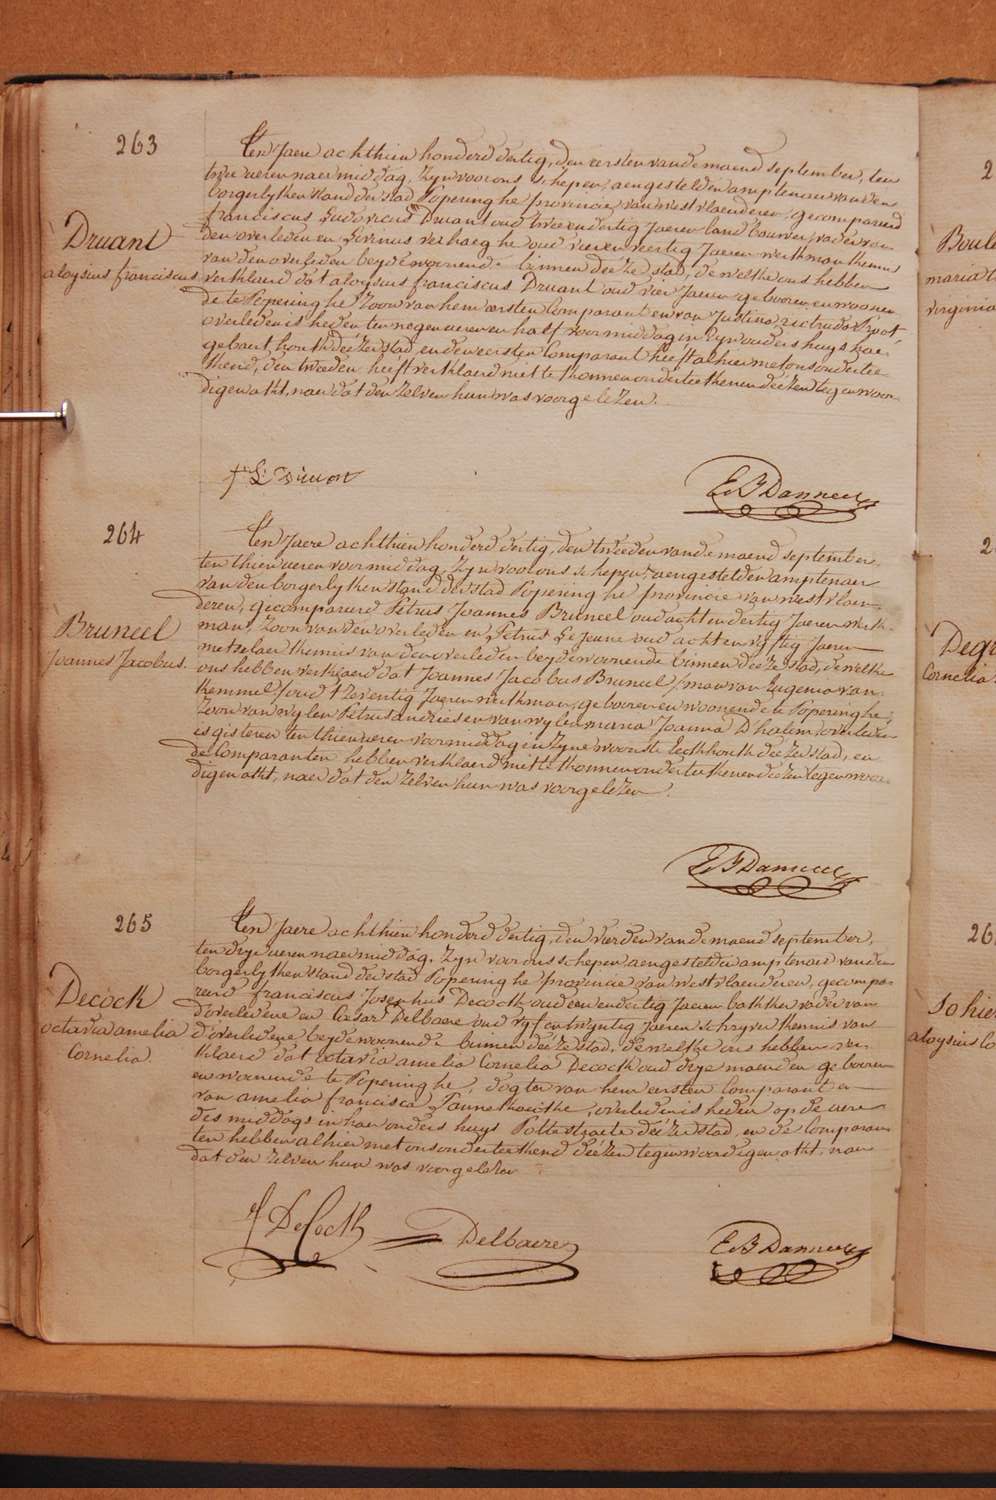 263
Druant
aloysius franciscus
Ten Jaere achthien honderd dertig, den eersten van de maend september, ten
twee ueren naer middag, Zyn voor ons schepen, aengestelden amptenaer van den
borgerlyken stand der stad Poperinghe provincie van westvlaenderen, gecompareerd
franciscus Ludovicus Druant oud twee en dertig Jaeren land bouwer, vader van
den overleden en Livinus verhaeghe oud vier en veertig Jaeren werkman kennis
van den overleden beyde woonende binnen deéze stad, de welke ons hebben
verklaerd dat aloysius franciscus Druant oud vier Jaeren gebooren en woonen
de te Poperinghe Zoon van hem eersten Comparant en van Justina rictrude
overleden is heden ten negen ueren en half voormiddag in Zyn ouders huys
gebaert houk deéze stad, en den eersten Comparant heeft alhier met ons onderte
kend, den tweeden heeft verklaerd niet te konnen onderteekenen deézen tegenwoor
digen akt, naer dat den Zelven hun was voorgelézen.
f L Druant
E B Danneel
264
Bruneel
Joannes Jacobus.
Ten Jaere achthien honderd dertig, den tweeden van de maend september
ten thien ueren voormiddag, Zyn voor ons schepen, aengestelden amptenaer
van den borgerlyken stand der stad Poperinghe provincie van westvlaen-
deren, gecompareerd Petrus Joannes Bruneel oud acht en dertig Jaeren werk-
man, Zoon van den overleden en Petrus Lejeune oud acht en vyftig Jaeren
metzelaer kennis van den overleden beyde woonende binnen deéze stad, de welke
ons hebben verklaerd dat Joannes Jacobus Bruneel / man van Eugenia van
kemmel / oud t'zeventig Jaeren werkman, gebooren en woonende te Poperinghe,
Zoon van wylen Petrus andries en van wylen maria Joanna D'halem overleden
is gisteren ten thien ueren voormiddag in Zyne woonste Eeckhouk deéze stad, en
de Comparanten hebben verklaerd niet te konnen onderteekenen deézen tegenwoor
digen akt, naer dat den Zelven hun was voorgelézen.
E B Danneel
265
Decock
octavia amelia
Cornelia.
Ten Jaere achthien honderd dertig, den vierden van de maend september,
ten drye ueren naermiddag, Zyn voor ons schepen, aengestelden amptenaer van den
borgerlyken stand der stad Poperinghe provincie van westvlaenderen, gecompa-
reerd franciscus Josephus Decock oud een en dertig Jaeren bakker vader van
d'overledene en Cæsar Delbaere oud vyf en twyntig Jaeren schryver kennis van
d'overledene beyde woonende binnen deéze stad, de welke ons hebben ver
klaerd dat octavia amelia Cornelia Decock oud drye maenden gebooren
en woonende te Poperinghe, dogter van hem eersten Comparant en
van amelia francisca Pannekoucke, overleden is heden op de uere
des middags in haer ouders huys Pottestraete deéze stad, en de Comparan
ten hebben alhier met ons onderteekend deézen tegenwoordigen akt, naer
dat den Zelven hun was voorgelézen
f DeCock
Delbaere
E B Danneel
2
Boule
maria
virginia
2
Degr
Cornelia
26
Sohier
aloysius